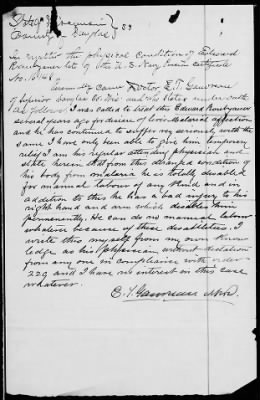 State of Wisconsin }
County of Douglas } SS
In matter the physical condition of Edward
late of the U.S. Navy certificate
No.
came Doctor E. T.
of Superior Douglas Co. Wis. and who states under oath
as follows: I was called to treat this Edward
several years ago for disease of liver Malarial affection
and he has continued to suffer very seriously with the
same I have only been able to give him temporary
relief I am his regular attending physician and
state herein that from this deranged condition of
his body from malaria he is totally disabled
for manual labour of any kind and in
addition to this he has a bad injury to his
right hand and arm which disables him
permanently. He can do no manual labour
whatever because of these disabilities. I
write this myself from my own know
ledge as his physician without dictation
from any one in compliance with order
229 and I have no interest in this case
whatever.
E. T. M.D.